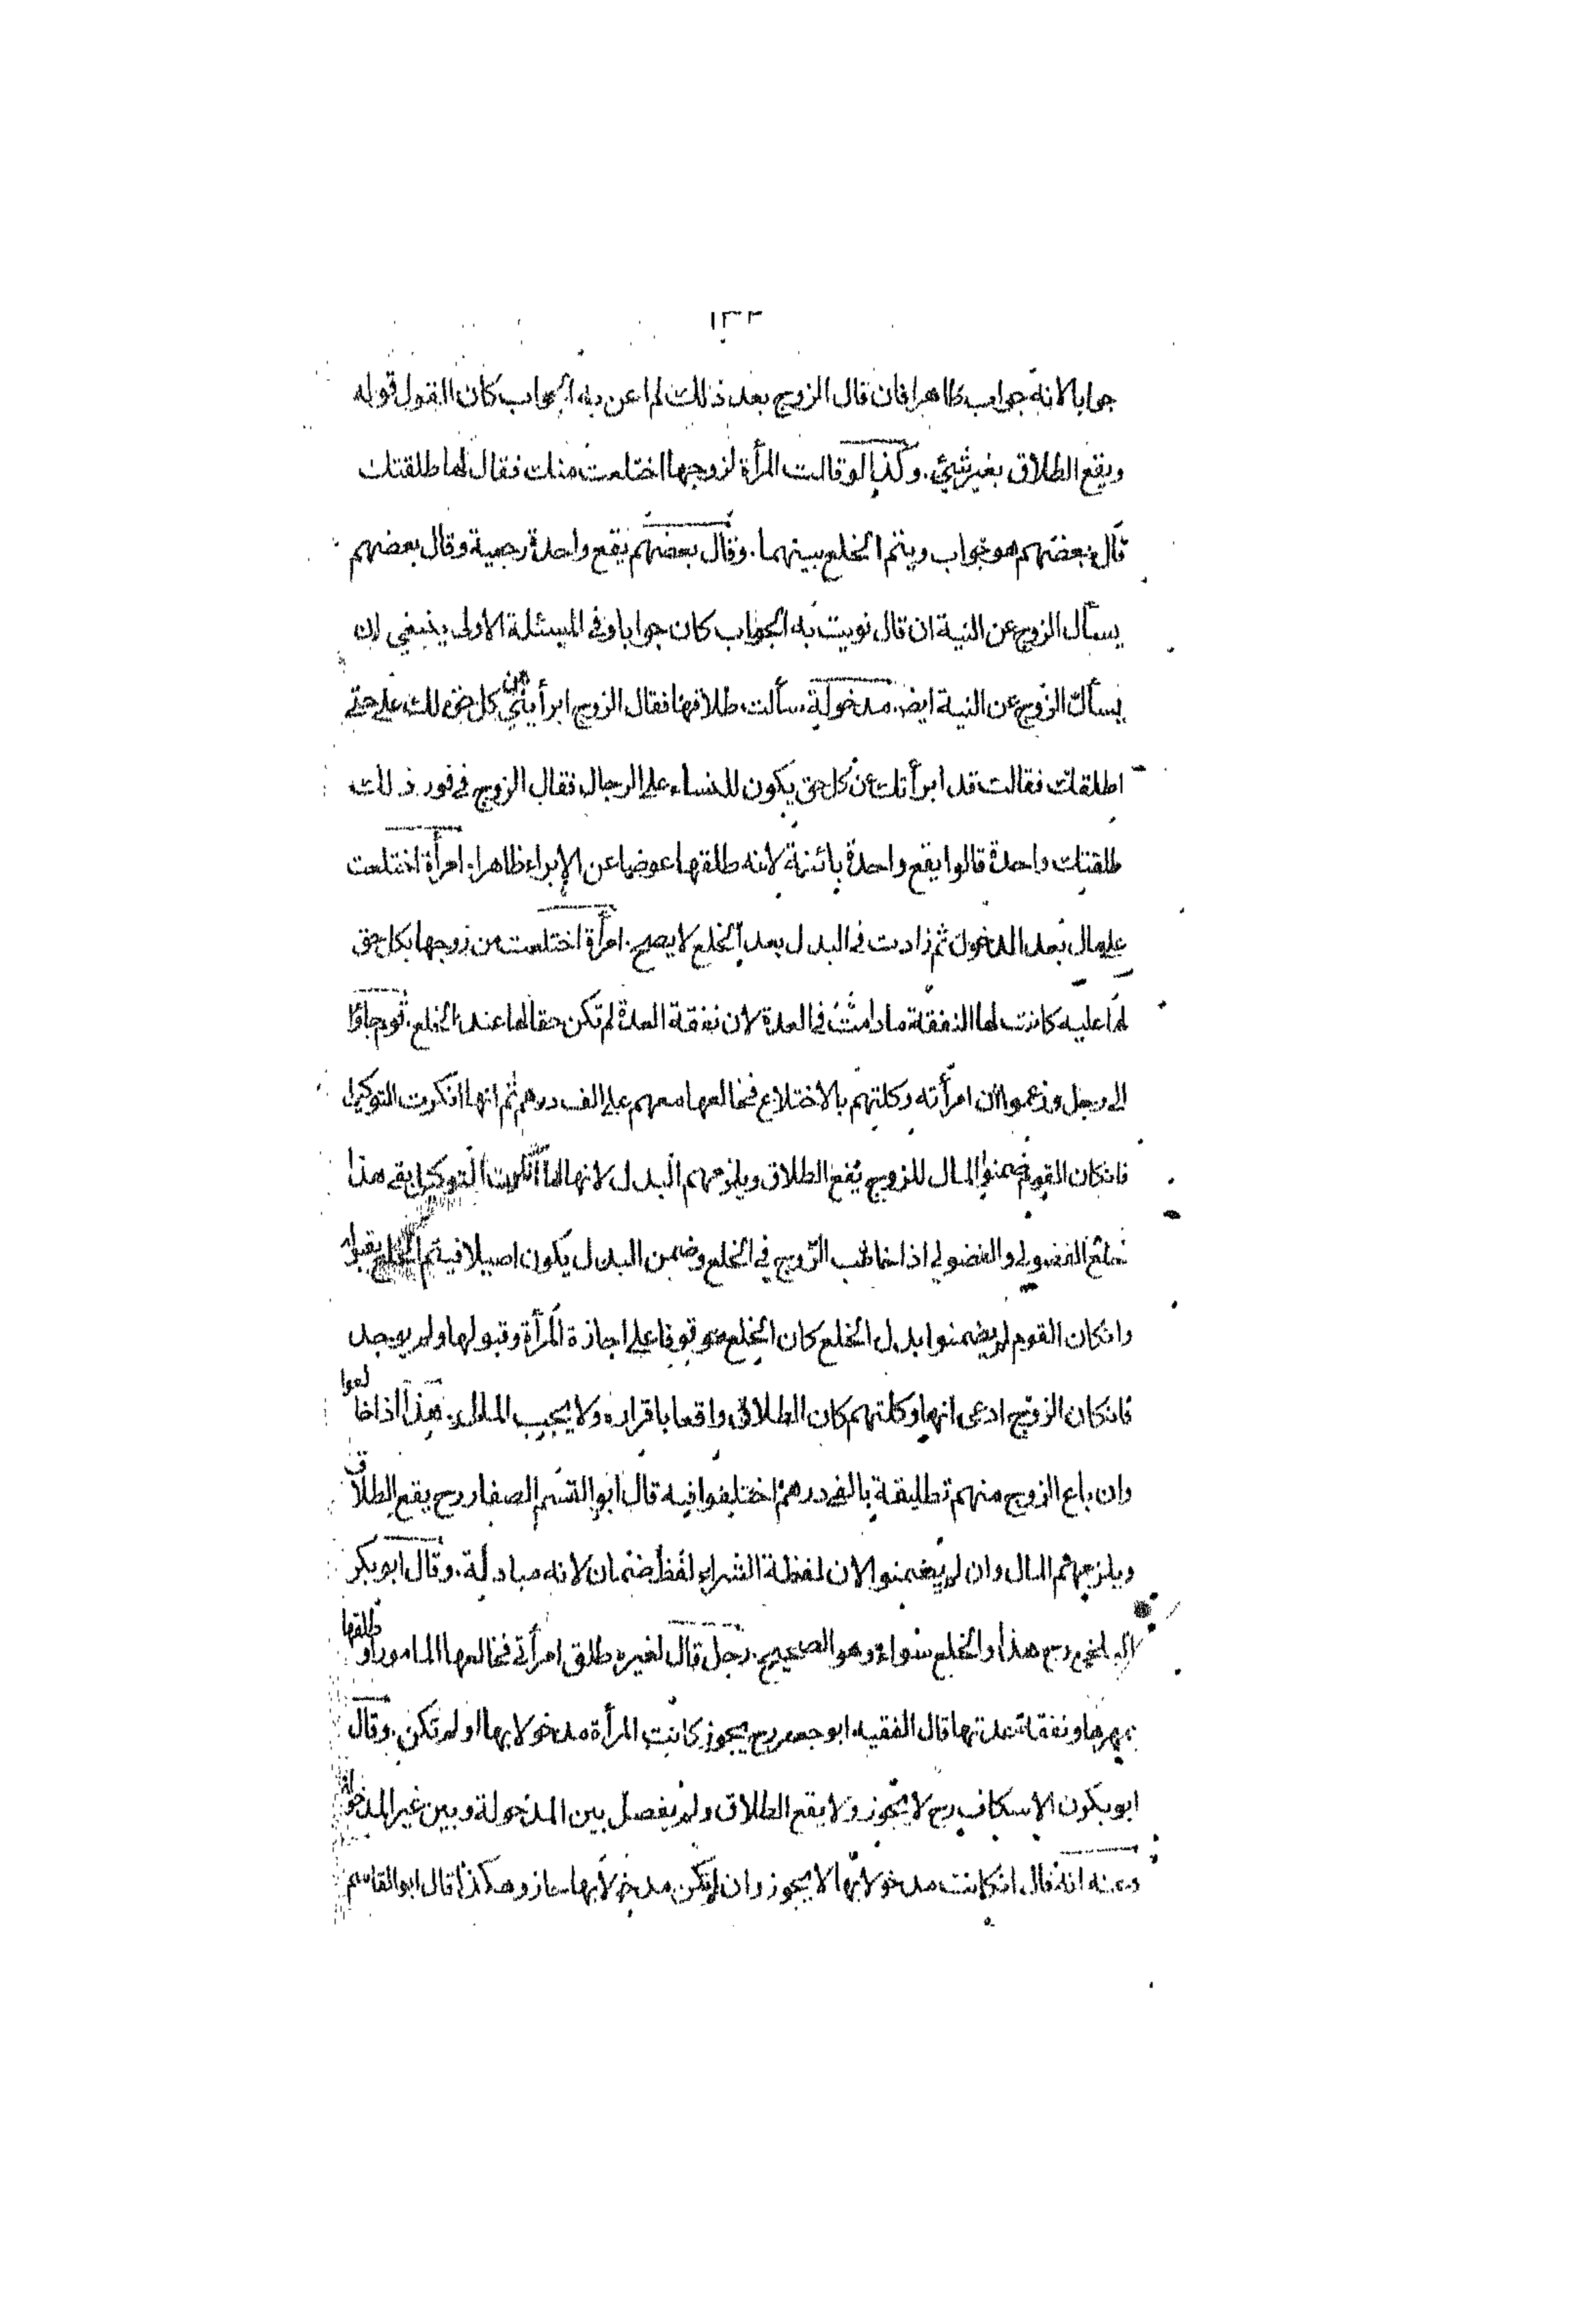 ١٣٣
جوابا لانه جواب ظاهرا فان قال الزوج بعد ذلك لم اعن به الجواب كان القول قوله
ويقع الطلاق بغير شيئ. وكذا لو قالت المرأة لزوجها اختلعت منك فقال لها طلقتك
قال بعضهم هو جواب ويتم الخلع بينهما. وقال بعضهم يقع واحدة رجعية وقال بعضهم
يسأل الزوج عن النية ان قال نويت به الجواب كان جوابا وفي المسئلة الاولى ينبغي ان
يسأل الزوج عن النية ايضا. مدخولة سألت طلاقها فقال الزوج ابرأيني من كل حق لك علي حتى
اطلقك فقالت قد ابرأتك عن كل حق يكون للنساء على الرجال فقال الزوج في فور ذلك
طلقتك واحدة قالوا يقع واحدة بائنة لانه طلقها عوضا عن الإبراء ظاهرا. امرأة اختلعت
على مال بعد الدخول ثم زادت في البدل بعد الخلع لا يصح. امرأة اختلعت من زوجها بكل حق
لها عليه كانت لها النفقة ما دامت في العدة لان نفقة العدة لم تكن حقا لها عند الخلع. قوم جاؤا
الى رجل وزعموا ان امرأته وكلتهم بالاختلاع فخالعها معهم على الف درهم ثم انها انكرت التوكيل
فانكان القوم ضمنوا المال للزوج يقع الطلاق ويلزمهم البدل لانها لما انكرت التوكيل بقي هذا
خلع الفضولي والفضولي اذا خاطب الزوج في الخلع وضمن البدل يكون اصيلا فيتم الخلع بقبوله
وانكان القوم لم يضمنوا بدل الخلع كان الخلع موقوفا على اجازة المرأة وقبولها ولم يوجد
فانكان الزوج ادعى انها وكلتهم كان الطلاق واقعا باقراره ولا يجب المال. هذا اذا خالعوا
وان باع الزوج منهم تطليقة بالف درهم اختلفوا فيه قال ابو القسم الصفار رح يقع الطلاق
ويلزمهم المال وان لم يضمنوا لان لفظة الشراء لفظ ضمان لانه مبادلة. وقال ابو بكر
البلخي رح هذا والخلع سواء وهو الصحيح. رجل قال لغيره طلق امرأتي فخالعها المامور او طلقها
بمهرها ونفقة عدتها قال الفقيه ابو جعفر رح يجوز كانت المرأة مدخولا بها او لم تكن. وقال
ابو بكر ن الاسكاف رح لا يجوز ولا يقع الطلاق ولم يفصل بين المدخولة وبين غير المدخولة
وعنه انه قال انكانت مدخولا بها لا يجوز وان لم تكن مدخولا بها جاز وهكذا قال ابو القاسم